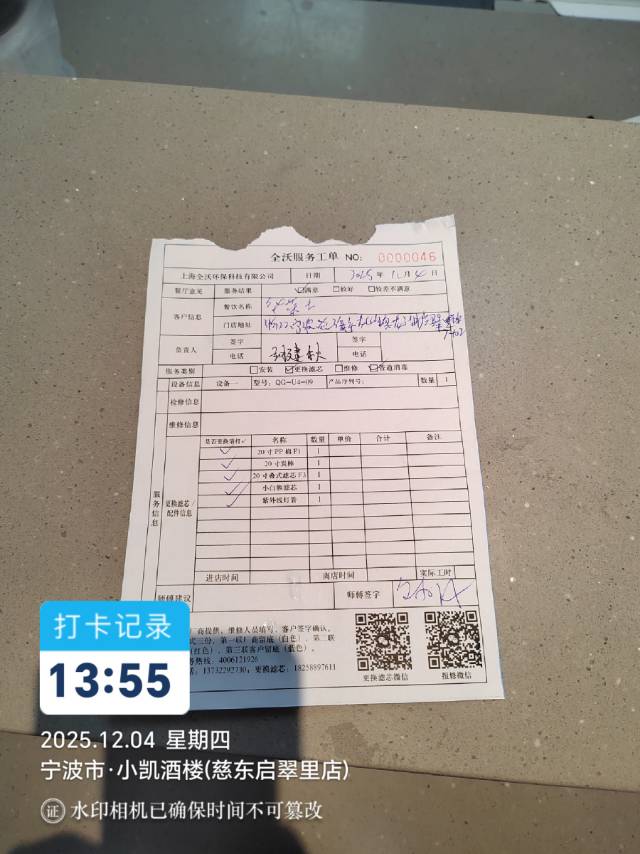 全沃服务工单 NO: 0000046
上海全沃环保科技有限公司 日期 2025年12月4日
餐厅意见 服务结果 ☑满意 □较好 □较不满意
客户信息 餐饮名称
门店地址
负责人 签字 签字
电话 电话
服务类别 □安装 ☑更换滤芯 □维修 ☑普通消毒
设备信息 设备一 型号: QG-U4-09 产品序列号: 数量 1
检修信息
维修信息
服务信息 更换滤芯/配件信息
是否更换请打√ 名称 数量 单价 合计 备注
✓ 20寸PP棉F1 1
✓ 20寸炭棒 1
✓ 20寸叠式滤芯F3 1
✓ 小白鲸滤芯 1
✓ 紫外线灯管 1
进店时间 离店时间 实际工时
师傅建议 师傅签字
商提供, 维修人员填写, 客户签字确认。
式三份, 第一联厂商留底(白色), 第二联
(红色), 第三联客户留底(蓝色)。
务热线: 4006121926
话: 13732292730; 更换滤芯: 18258897611
更换滤芯微信 报修微信
打卡记录
13:55
2025.12.04 星期四
宁波市·小凯酒楼(慈东启翠里店)
证 水印相机已确保时间不可篡改